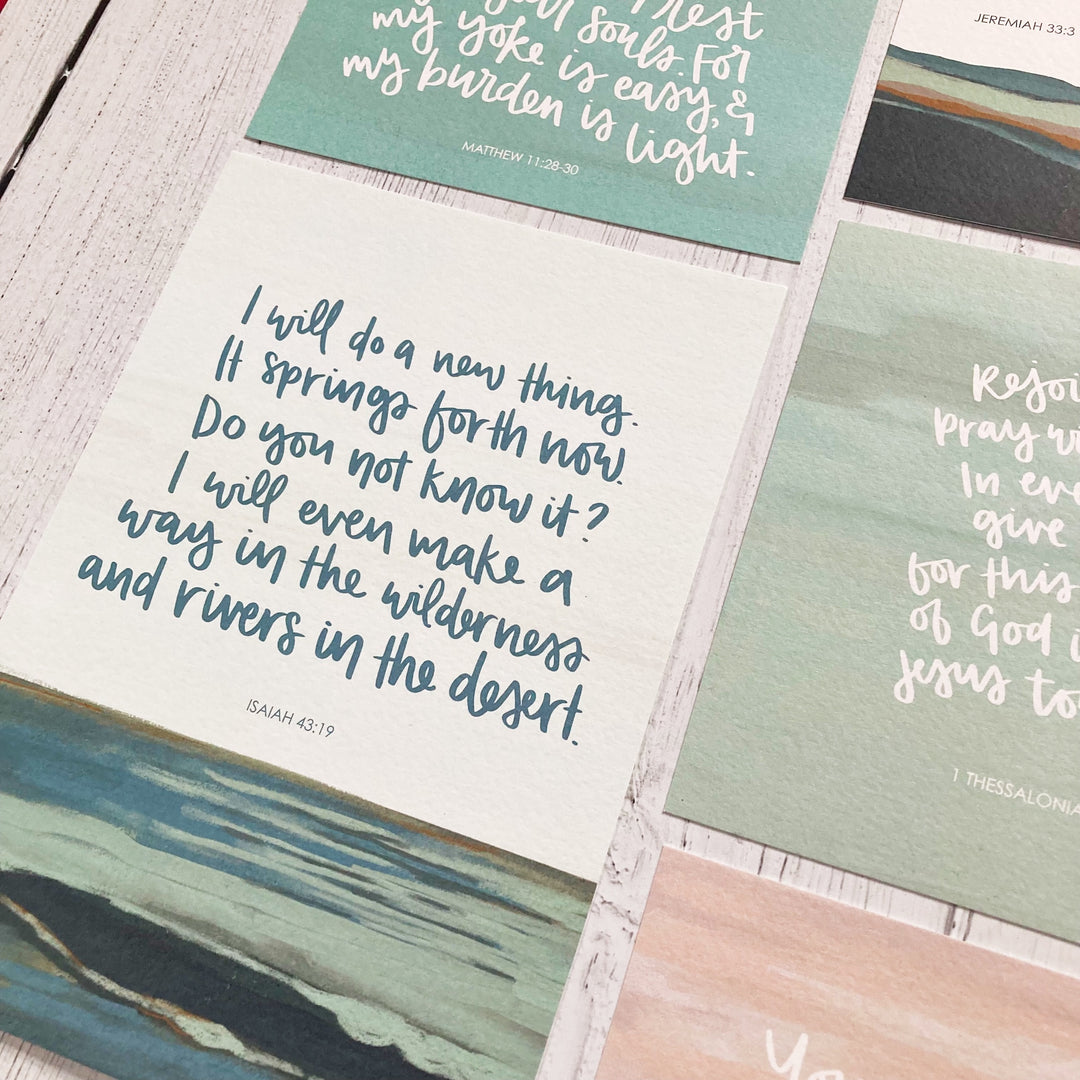 rest
your souls. For
my yoke is easy, &
my burden is light.
MATTHEW 11:28-30
JEREMIAH 33:3
I will do a new thing.
It springs forth now.
Do you not know it?
I will even make a
way in the wilderness
and rivers in the desert.
ISAIAH 43:19
Rejoi
pray w
In eve
give
for this
of God i
Jesus to
1 THESSALONIA
Yo